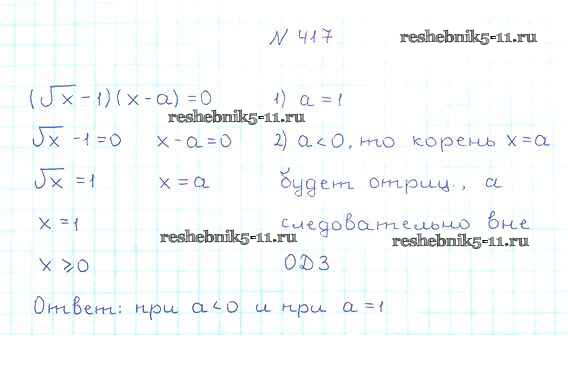 № 417 reshebnik5-11.ru
(√x - 1)(x - a) = 0 1) a = 1
reshebnik5-11.ru
√x - 1 = 0 x - a = 0 2) a < 0, то корень x = a
√x = 1 x = a будет отриц., а
x = 1 следовательно вне
reshebnik5-11.ru reshebnik5-11.ru
x ⩾ 0 ОДЗ
Ответ: при a < 0 и при a = 1